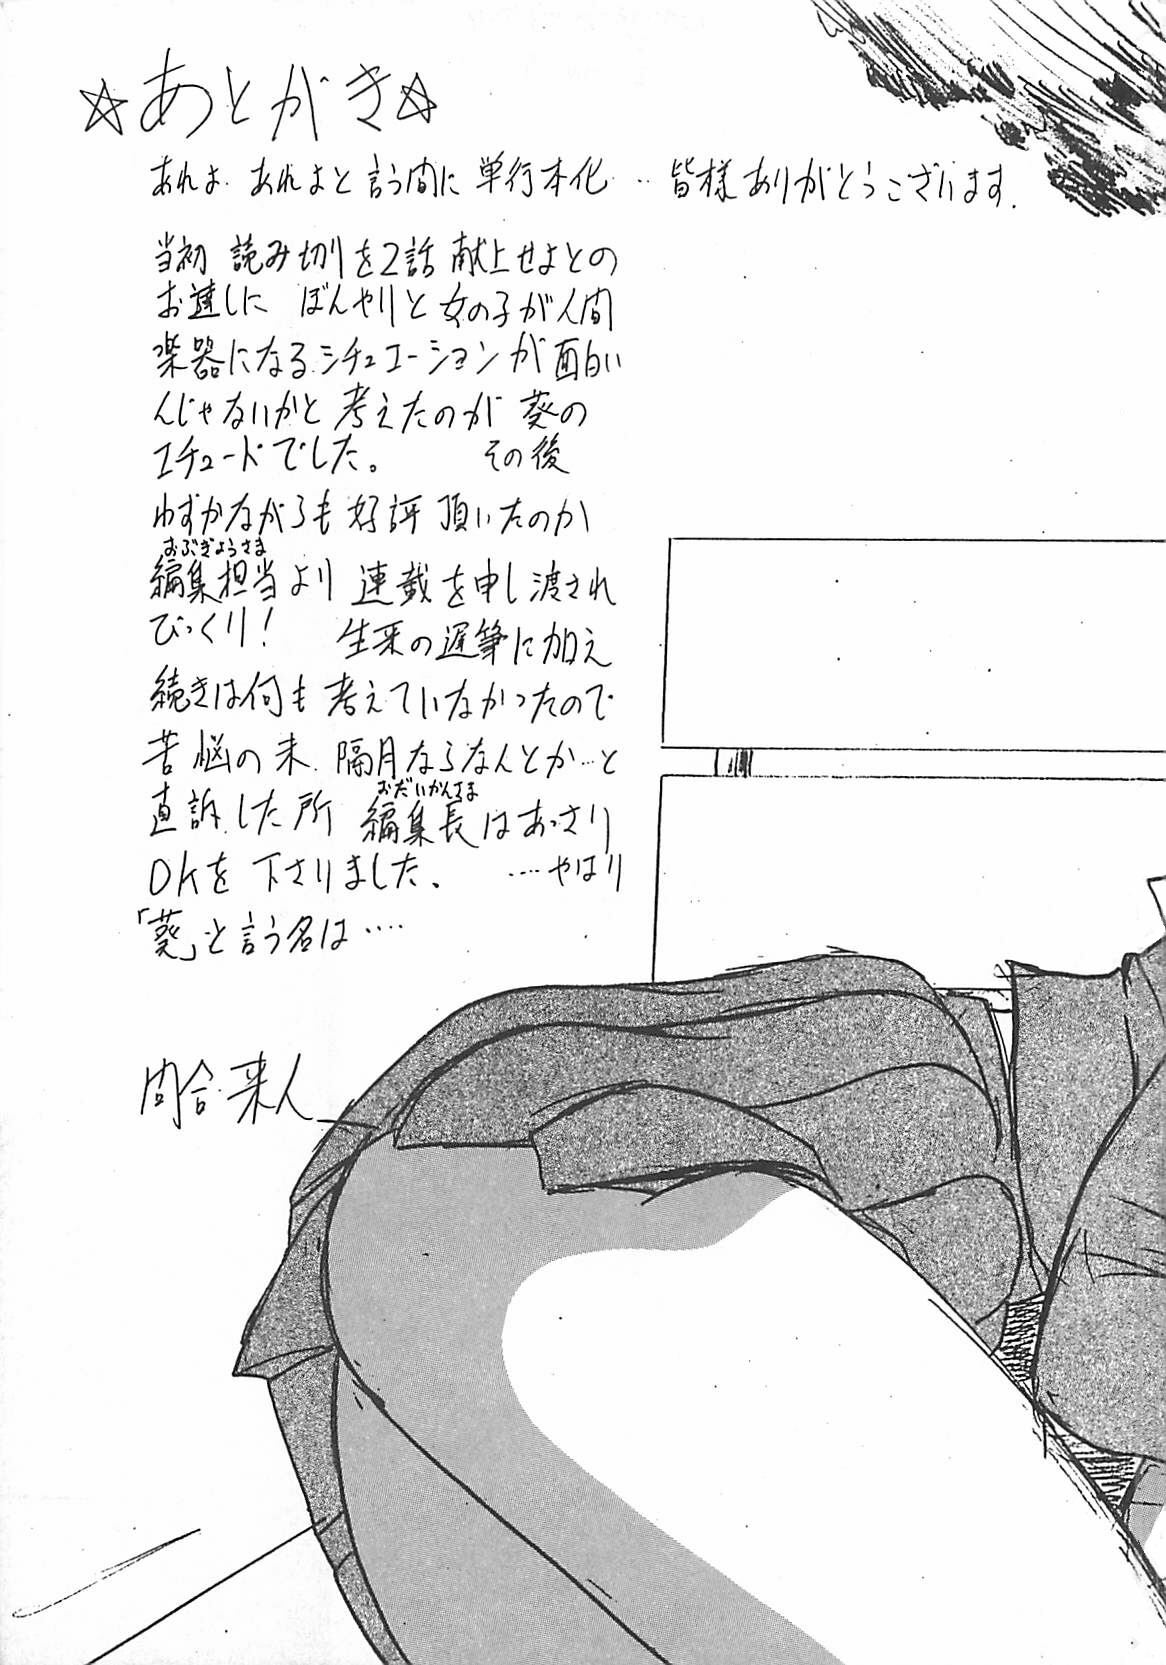 ☆あとがき☆
あれよ あれよと言う間に 単行本化 … 皆様ありがとうございます.
当初 読み切りを2話 献上せよとの
お達しに ぼんやりと 女の子が人間
楽器になるシチュエーションが面白い
んじゃないかと 考えたのが 葵の
エチュードでした。 その後
わずかながらも 好評 頂いたのか
おぶぎょうさま
編集担当より 連載を申し渡され
びっくり! 生来の遅筆に加え
続きは何も 考えていなかったので
苦悩の末 隔月ならなんとか…と
おだいかんさま
直訴した所 編集長はあっさり
OKを 下さりました. ……やはり
「葵」と言う名は‥‥
間合 来人